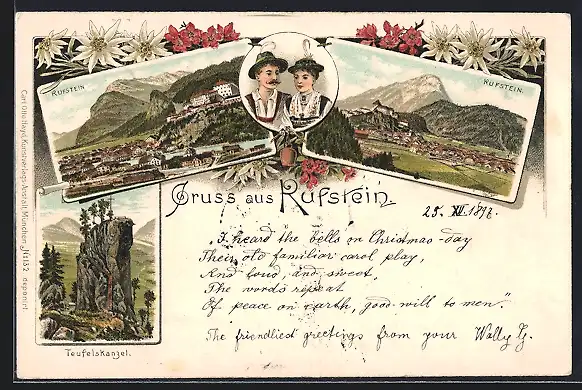 KUFSTEIN
KUFSTEIN.
Gruss aus Kufstein
25. XII. 1897
"I heard the bells on Christmas-day
Their old familiar carol play,
And loud, and sweet,
The words repeat
Of peace on earth, good-will to men".
The friendliest greetings from your Wally G.
Teufelskanzel.
Carl Otto Hayd, Kunstverlags-Anstalt, München № 132 deponirt.